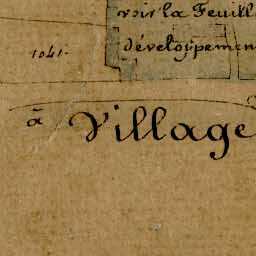 voir la Feuill
développemen
1041.
à Village